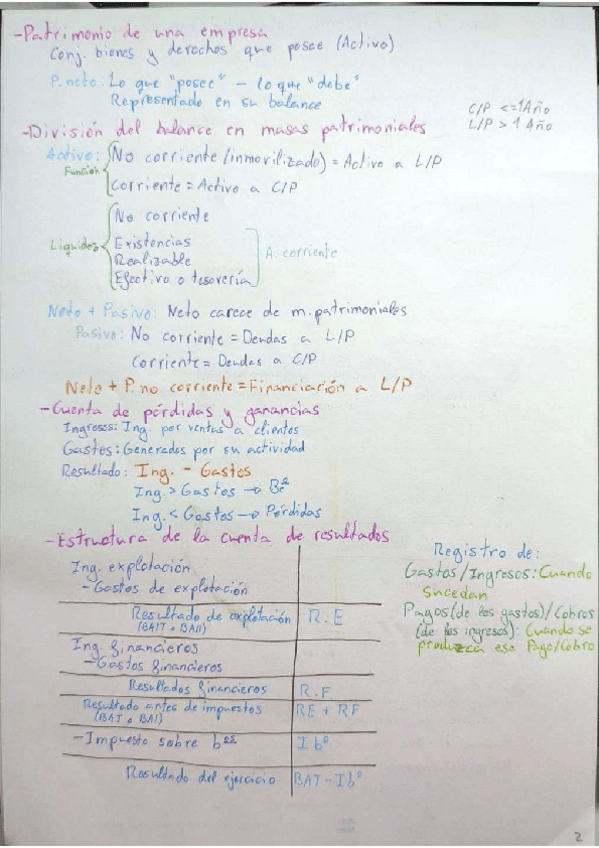 -Patrimonio de una empresa
Conj. bienes y derechos que posee (Activo)
P. neto: Lo que "posee" - lo que "debe"
Representado en su balance
C/P <=1 Año
L/P > 1 Año
-División del balance en masas patrimoniales
Activo: No corriente (inmovilizado) = Activo a L/P
Función
Corriente = Activo a C/P
No corriente
Liquidez Existencias
Realizable
A. corriente
Efectivo o tesorería
Neto + Pasivo: Neto carece de m. patrimoniales
Pasivo: No corriente = Deudas a L/P
Corriente = Deudas a C/P
Neto + P. no corriente = Financiación a L/P
-Cuenta de pérdidas y ganancias
Ingresos: Ing. por ventas a clientes
Gastos: Generados por su actividad
Resultado: Ing. - Gastos
Ing. > Gastos → Bº
Ing. < Gastos → Pérdidas
-Estructura de la cuenta de resultados
Ing. explotación
-Gastos de explotación
Resultado de explotación R.E
(BAIT o BAII)
Ing. financieros
-Gastos financieros
Resultados financieros R.F
Resultado antes de impuestos RE + RF
(BAT o BAI)
-Impuesto sobre bºº I bº
Resultado del ejercicio BAT - I bº
Registro de:
Gastos/Ingresos: Cuando
sucedan
Pagos (de los gastos)/Cobros
(de los ingresos): Cuando se
produzca ese Pago/Cobro
2